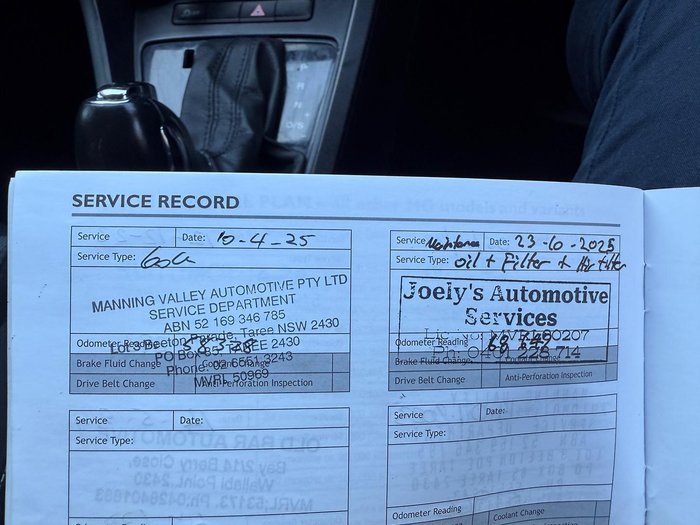 SERVICE RECORD
Service Date: 10-4-25
Service Type:
MANNING VALLEY AUTOMOTIVE PTY LTD
SERVICE DEPARTMENT
ABN 52 169 346 785
Lot 3 Beeton Parade, Taree NSW 2430
PO Box 85, TAREE 2430
Phone: 02 6551 3243
MVRL 50969
Odometer Reading
Brake Fluid Change Coolant Change
Drive Belt Change Anti-Perforation Inspection
Service Date: 23-10-2025
Service Type: oil + Filter + Air Filter
Joely's Automotive
Services
Lic No: MVRL60207
Odometer Reading
Brake Fluid Change Coolant Change
Drive Belt Change Anti-Perforation Inspection
Service Date:
Service Type:
Service Date:
Service Type:
Odometer Reading
Brake Fluid Change Coolant Change